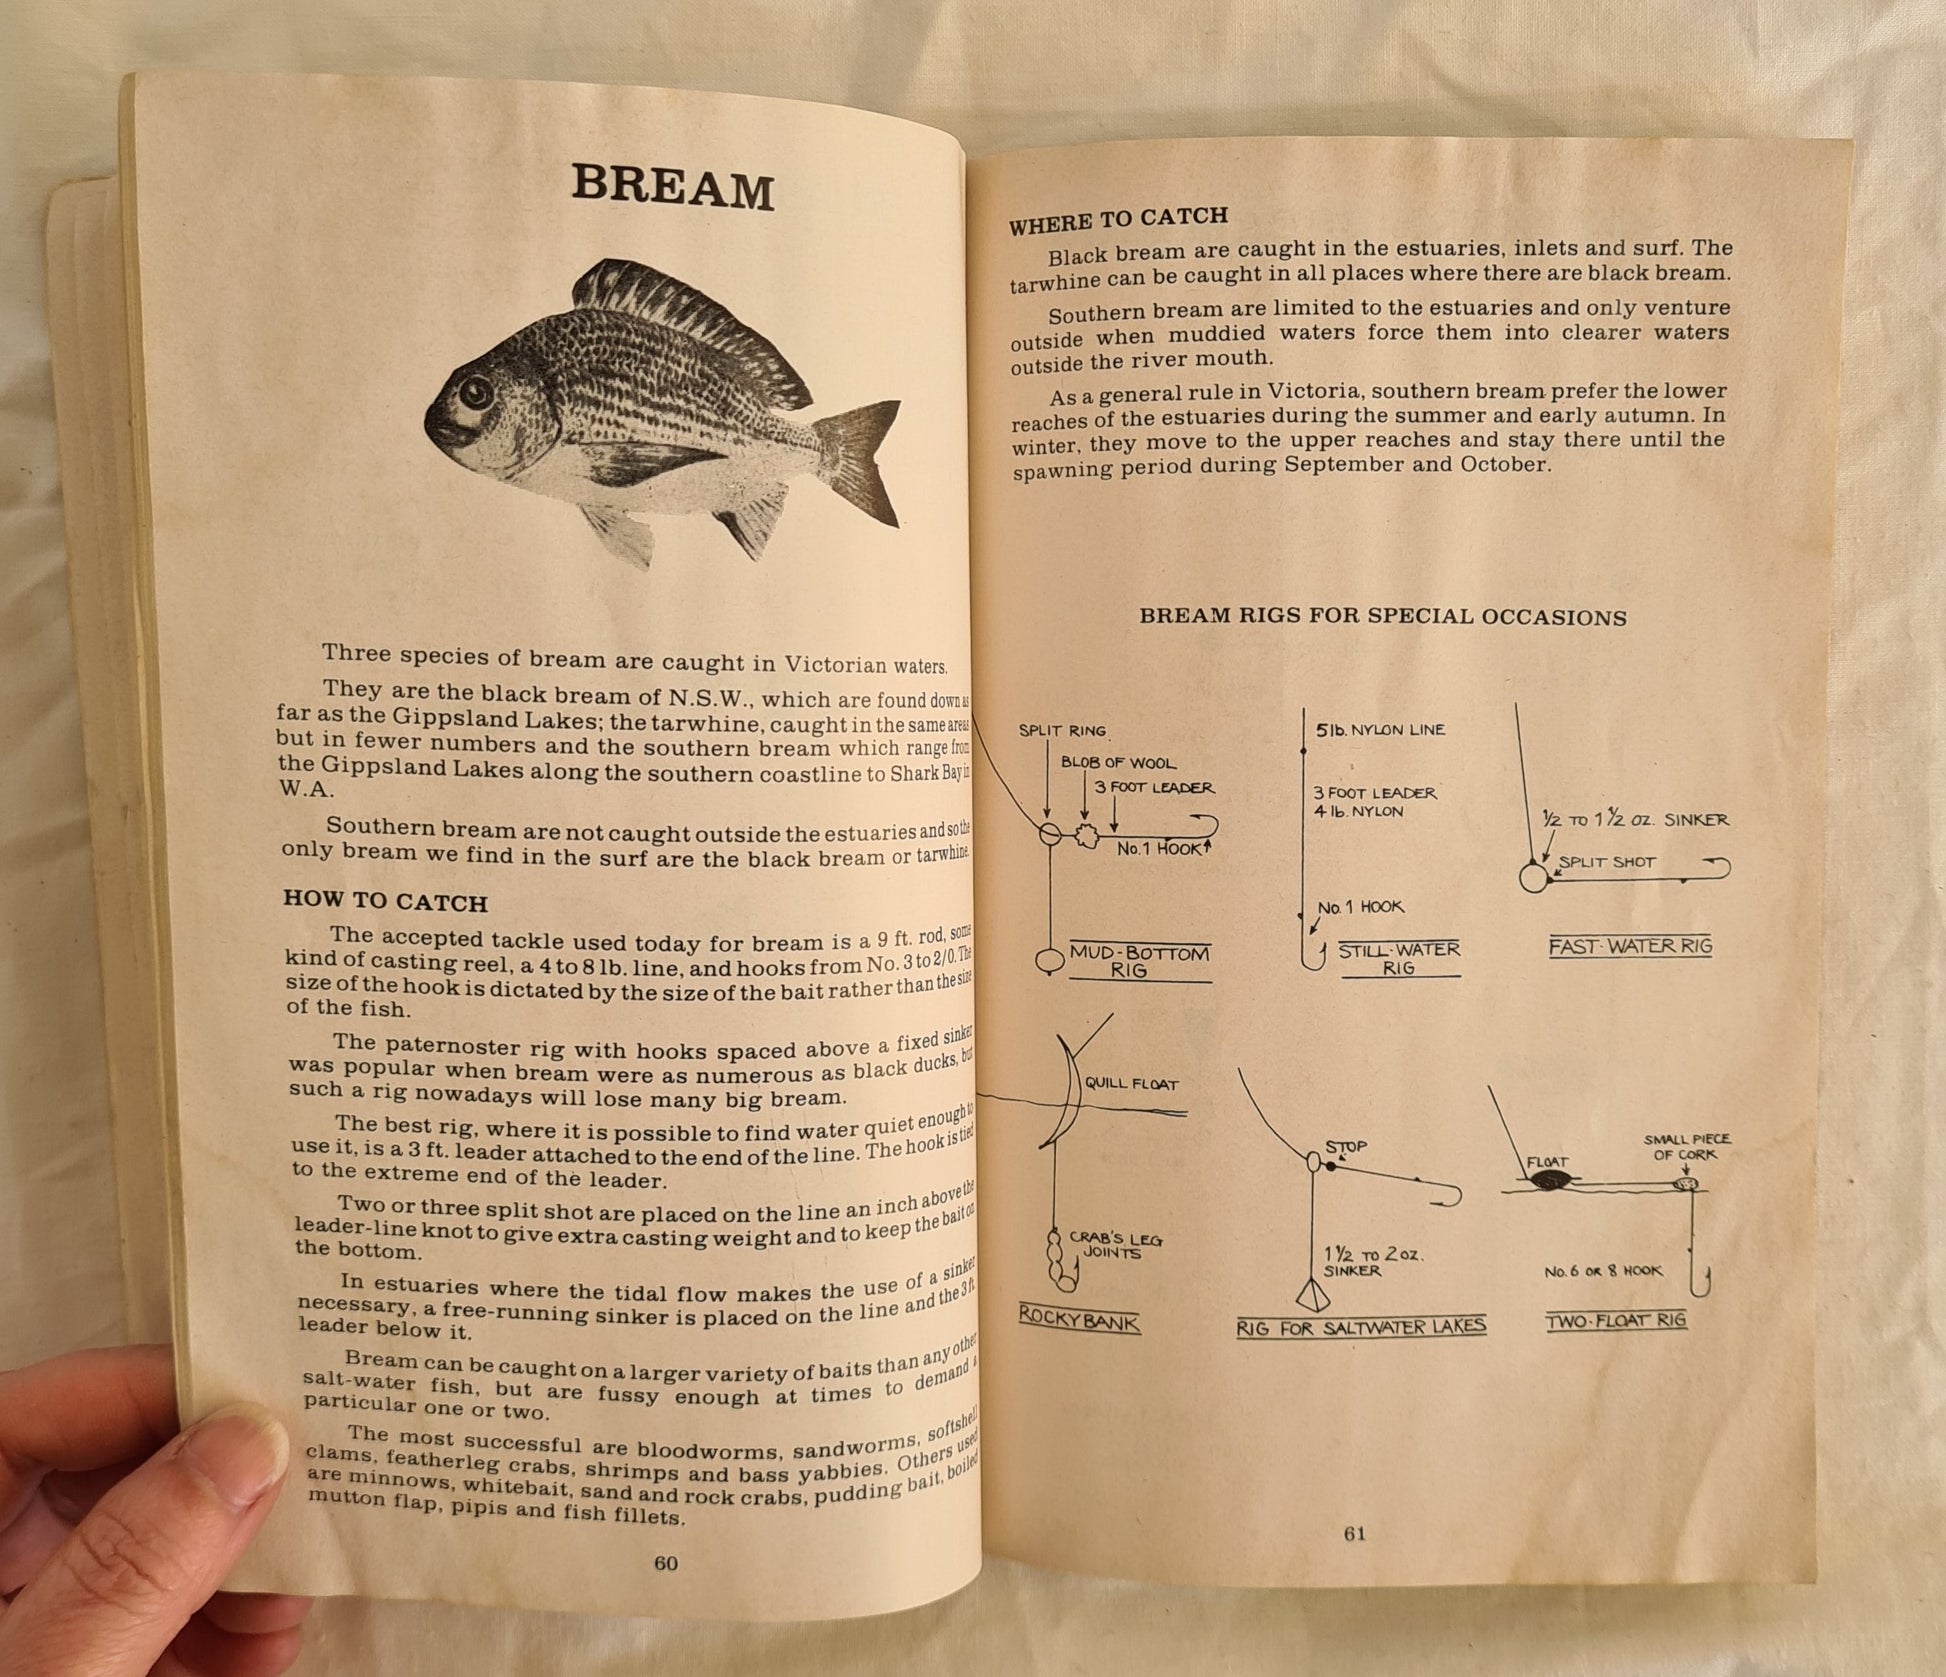 BREAM
Three species of bream are caught in Victorian waters.
They are the black bream of N.S.W., which are found down as
far as the Gippsland Lakes; the tarwhine, caught in the same areas
but in fewer numbers and the southern bream which range from
the Gippsland Lakes along the southern coastline to Shark Bay in
W.A.
Southern bream are not caught outside the estuaries and so the
only bream we find in the surf are the black bream or tarwhine.
HOW TO CATCH
The accepted tackle used today for bream is a 9 ft. rod, some
kind of casting reel, a 4 to 8 lb. line, and hooks from No. 3 to 2/0. The
size of the hook is dictated by the size of the bait rather than the size
of the fish.
The paternoster rig with hooks spaced above a fixed sinker
was popular when bream were as numerous as black ducks, but
such a rig nowadays will lose many big bream.
The best rig, where it is possible to find water quiet enough to
use it, is a 3 ft. leader attached to the end of the line. The hook is tied
to the extreme end of the leader.
Two or three split shot are placed on the line an inch above the
leader-line knot to give extra casting weight and to keep the bait on
the bottom.
In estuaries where the tidal flow makes the use of a sinker
necessary, a free-running sinker is placed on the line and the 3 ft.
leader below it.
Bream can be caught on a larger variety of baits than any other
salt-water fish, but are fussy enough at times to demand a
particular one or two.
The most successful are bloodworms, sandworms, softshell
clams, featherleg crabs, shrimps and bass yabbies. Others used
are minnows, whitebait, sand and rock crabs, pudding bait, boiled
mutton flap, pipis and fish fillets.
60
WHERE TO CATCH
Black bream are caught in the estuaries, inlets and surf. The
tarwhine can be caught in all places where there are black bream.
Southern bream are limited to the estuaries and only venture
outside when muddied waters force them into clearer waters
outside the river mouth.
As a general rule in Victoria, southern bream prefer the lower
reaches of the estuaries during the summer and early autumn. In
winter, they move to the upper reaches and stay there until the
spawning period during September and October.
BREAM RIGS FOR SPECIAL OCCASIONS
SPLIT RING
BLOB OF WOOL
3 FOOT LEADER
No. 1 HOOK
MUD-BOTTOM
RIG
5 lb. NYLON LINE
3 FOOT LEADER
4 lb. NYLON
No. 1 HOOK
STILL-WATER
RIG
1/2 TO 1 1/2 OZ. SINKER
SPLIT SHOT
FAST-WATER RIG
QUILL FLOAT
CRAB'S LEG
JOINTS
ROCKY BANK
STOP
1 1/2 TO 2 OZ.
SINKER
RIG FOR SALTWATER LAKES
FLOAT
SMALL PIECE
OF CORK
No. 6 OR 8 HOOK
TWO-FLOAT RIG
61